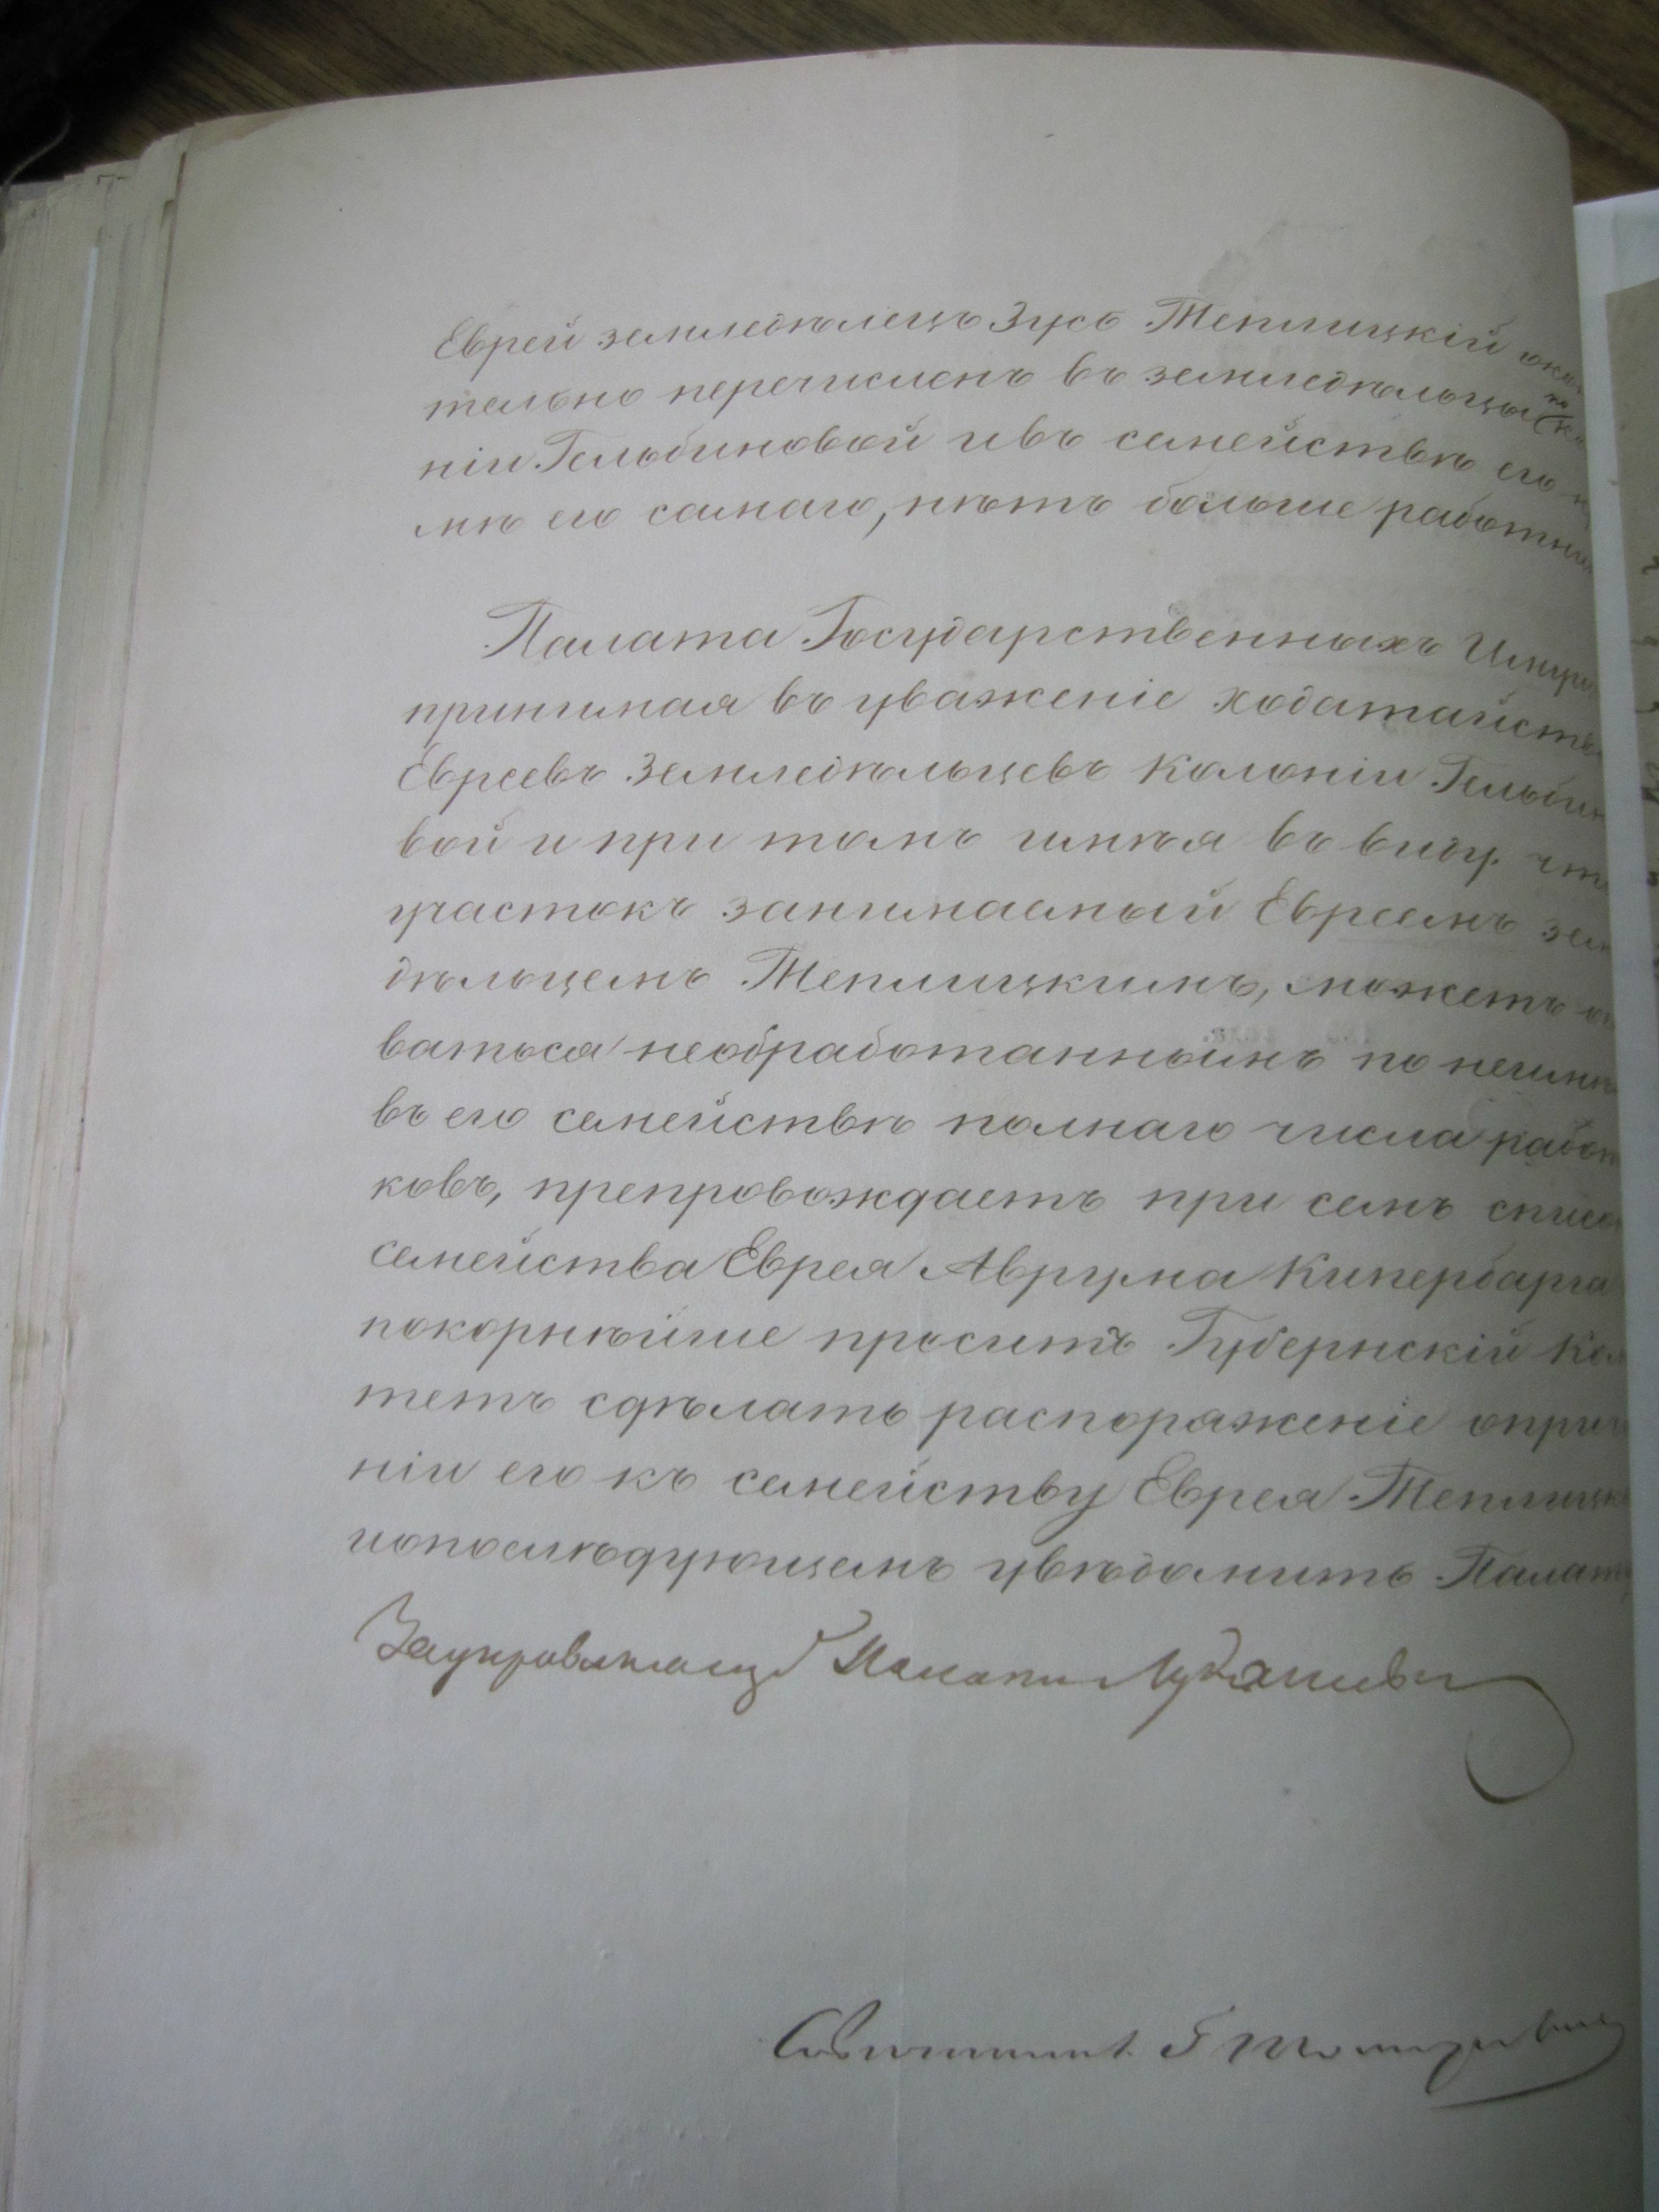 Еврей земледѣлецъ Зусь Теплицкій окон
тельно перечисленъ въ земледѣльцы по ко
ніи Гельбиновой и въ семействѣ его к
мѣ его самаго, нѣтъ больше работни
Палата Государственныхъ Имущ
принимая въ уваженіе ходатайств
Евреевъ Земледѣльцевъ Колоніи Гельбин
вой и при томъ имѣя въ виду что
участокъ занимаемый Евреемъ зем
дѣльцемъ Теплицкимъ, можетъ о
ваться необработаннымъ по неимѣ
въ его семействѣ полнаго числа работ
ковъ, препровождаетъ при семъ списо
семейства Еврея Аврума Кипербарга
покорнѣйше проситъ Губернскій Ком
тетъ сдѣлать распоряженіе опри
ніи его къ семейству Еврея Теплицк
ипослѣдующемъ увѣдомить Палату
Заупровляющ Палатою
Совѣтникъ